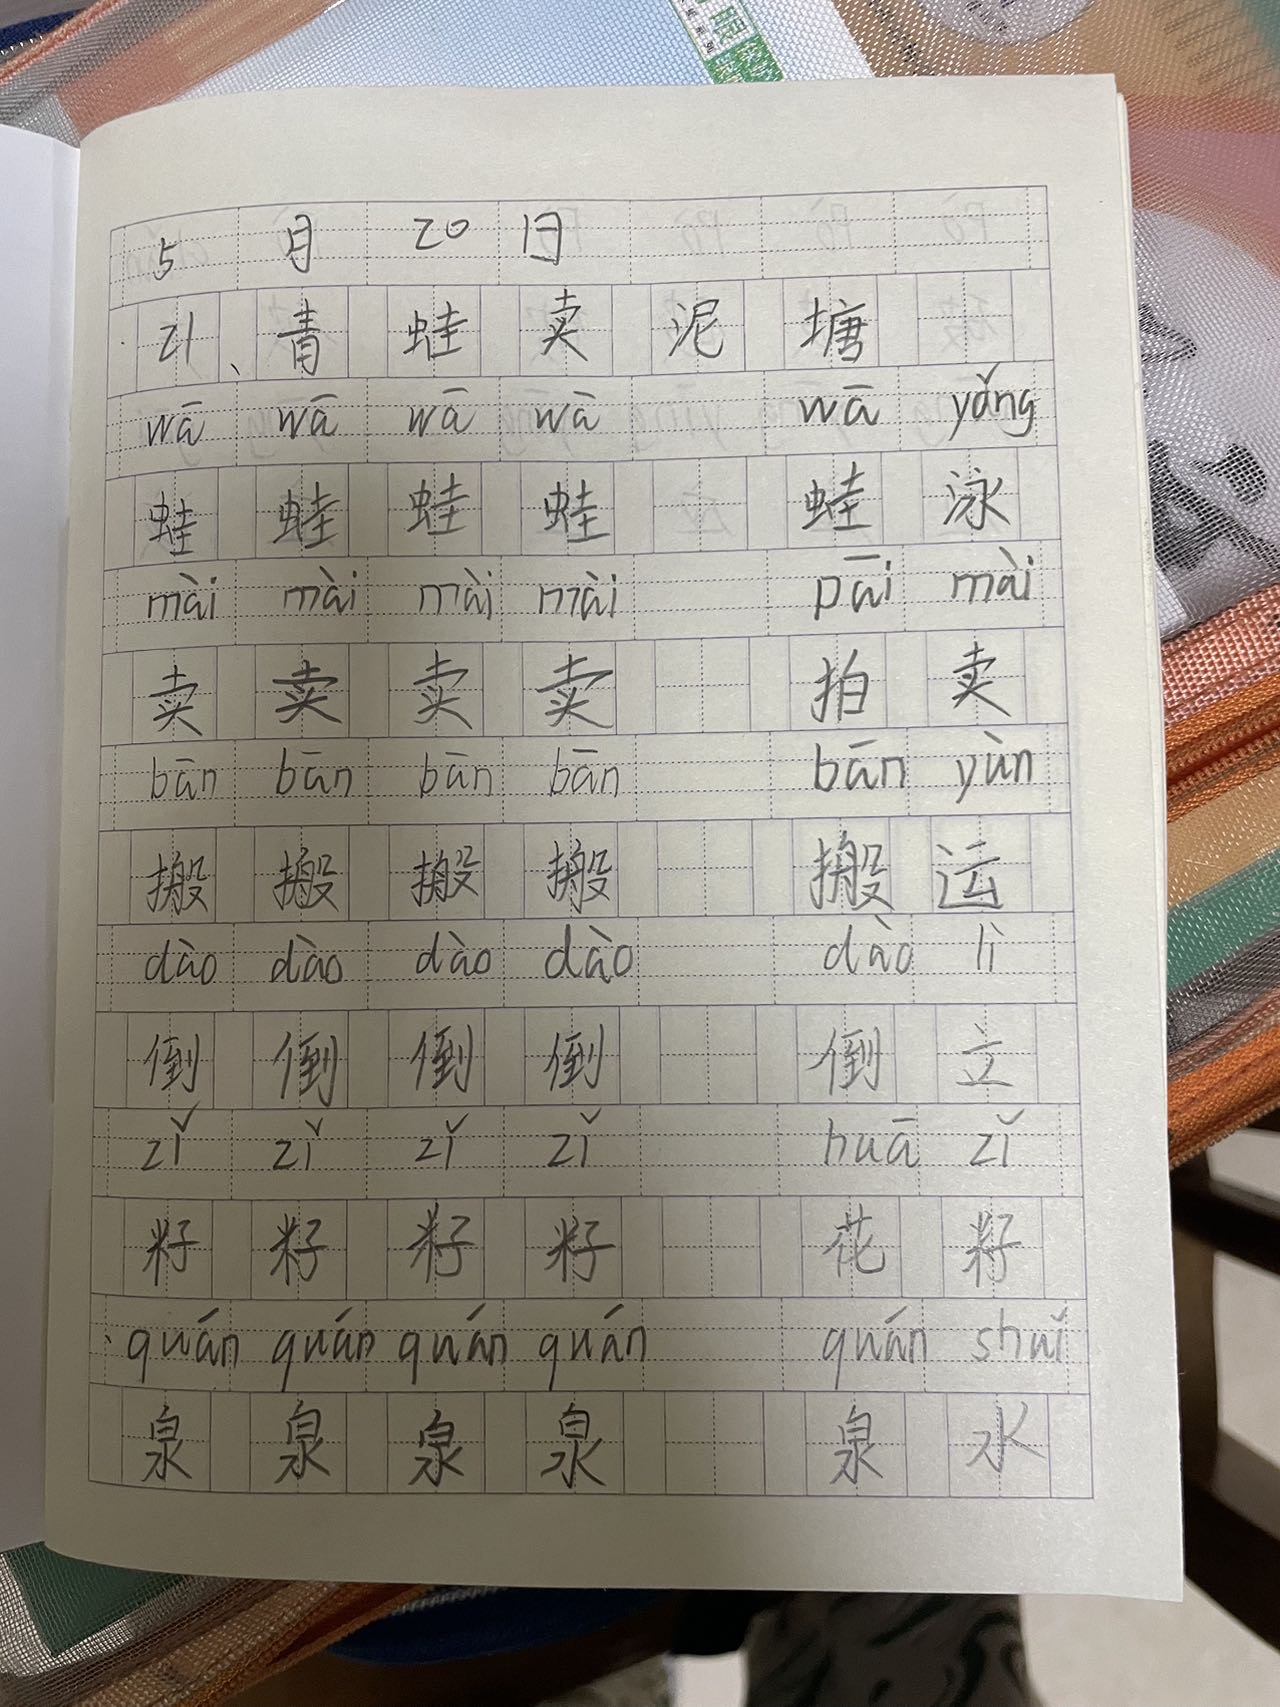 5 月 20 日
21、青 蛙 卖 泥 塘
wā wā wā wā wā yǒng
蛙 蛙 蛙 蛙 蛙 泳
mài mài mài mài pāi mài
卖 卖 卖 卖 拍 卖
bān bān bān bān bān yùn
搬 搬 搬 搬 搬 运
dào dào dào dào dào lì
倒 倒 倒 倒 倒 立
zǐ zǐ zǐ zǐ huā zǐ
籽 籽 籽 籽 花 籽
quán quán quán quán quán shuǐ
泉 泉 泉 泉 泉 水